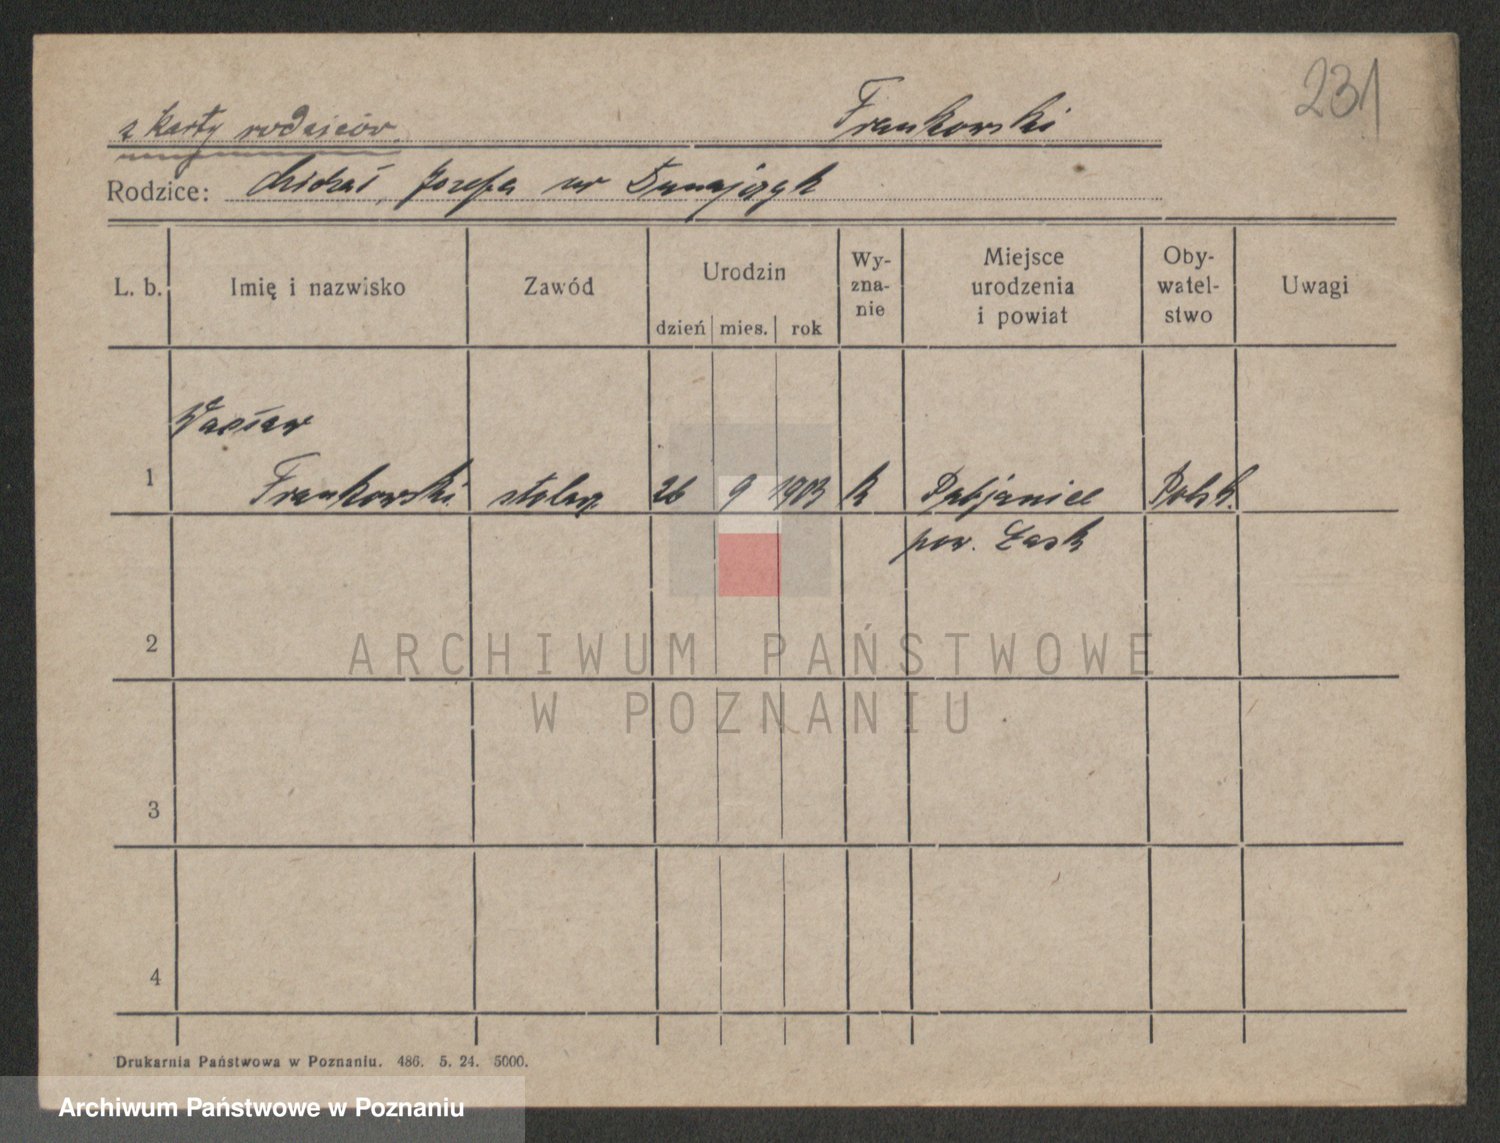 231
z karty rodziców Frankowski
Rodzice: Michał, Józefa ur Dunajczyk
L. b. Imię i nazwisko Zawód Urodzin Wy-zna-nie Miejsce urodzenia i powiat Oby-watel-stwo Uwagi
dzień mies. rok
Wacław
1 Frankowski stolarz 26 9 1903 k Pabjanice Polsk.
pow. Łask
2
ARCHIWUM PAŃSTWOWE
W POZNANIU
3
4
Drukarnia Państwowa w Poznaniu. 486. 5. 24. 5000.
Archiwum Państwowe w Poznaniu